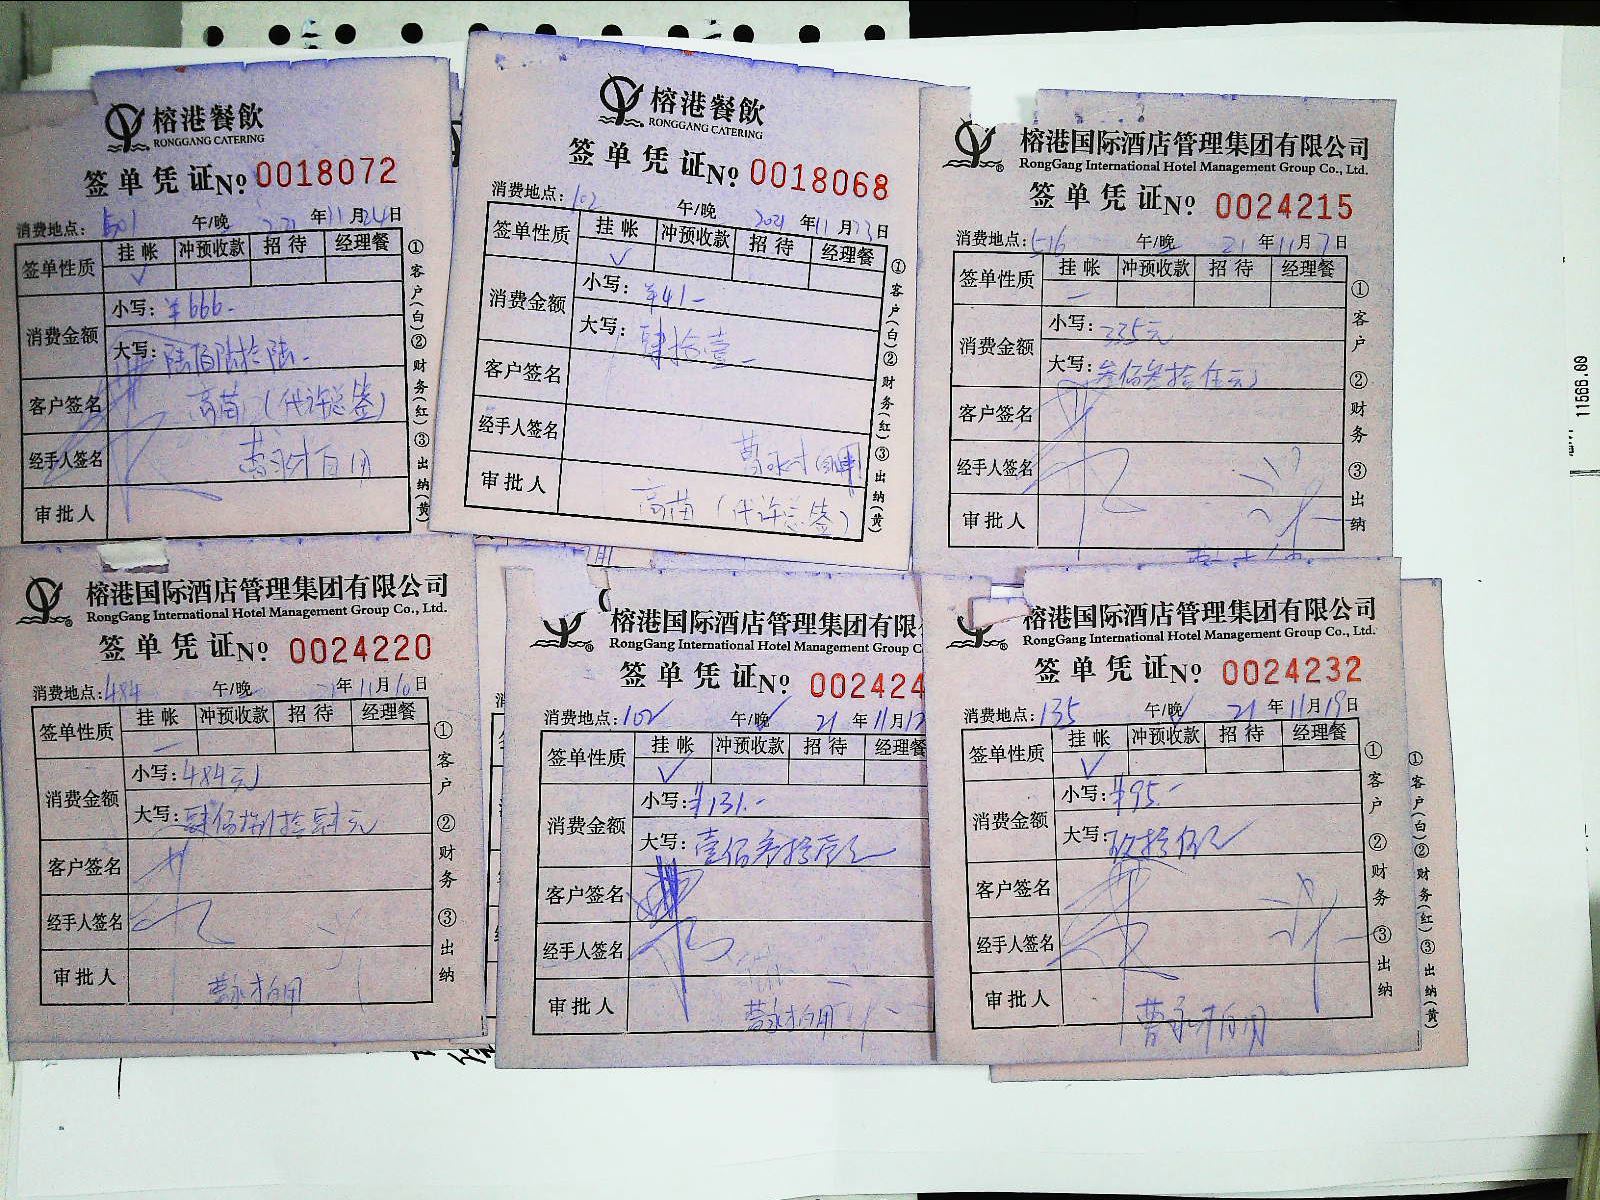 榕港餐飲
RONGGANG CATERING
签单凭证 No 0018072
消费地点: 501 午/晚 年11月24日
签单性质 挂帐 冲预收款 招待 经理餐
✓
消费金额 小写: ¥666-
大写: 陆佰陆拾陆-
客户签名 高苗(代许总签)
经手人签名 曹永才自用
审批人
①客户(白)②财务(红)③出纳(黄)
榕港餐飲
RONGGANG CATERING
签单凭证 No 0018068
消费地点: 102 午/晚 2021年11月23日
签单性质 挂帐 冲预收款 招待 经理餐
✓
消费金额 小写: ¥41-
大写: 肆拾壹-
客户签名
经手人签名 曹永才自用
审批人 高苗(代许总签)
①客户(白)②财务(红)③出纳(黄)
榕港国际酒店管理集团有限公司
RongGang International Hotel Management Group Co., Ltd.
签单凭证 No 0024215
消费地点: 516 午/晚 21年11月7日
签单性质 挂帐 冲预收款 招待 经理餐
消费金额 小写: 335元
大写: 叁佰叁拾伍元
客户签名
经手人签名
审批人
①客户 ②财务 ③出纳
11566.00
榕港国际酒店管理集团有限公司
RongGang International Hotel Management Group Co., Ltd.
签单凭证 No 0024220
消费地点: 484 午/晚 21年11月10日
签单性质 挂帐 冲预收款 招待 经理餐
消费金额 小写: 484元
大写: 肆佰捌拾肆元
客户签名
经手人签名
审批人 曹永才自用
①客户 ②财务 ③出纳
榕港国际酒店管理集团有限
RongGang International Hotel Management Group C
签单凭证 No 002424
消费地点: 102 午/晚 21年11月1
签单性质 挂帐 冲预收款 招待 经理餐
✓
消费金额 小写: ¥131.-
大写: 壹佰叁拾壹元
客户签名
经手人签名
审批人 曹永才自用
榕港国际酒店管理集团有限公司
RongGang International Hotel Management Group Co., Ltd.
签单凭证 No 0024232
消费地点: 135 午/晚 21年11月19日
签单性质 挂帐 冲预收款 招待 经理餐
✓
消费金额 小写: ¥95.-
大写: 玖拾伍元
客户签名
经手人签名
审批人 曹永才自用
①客户 ②财务 ③出纳
①客户(白)②财务(红)③出纳(黄)